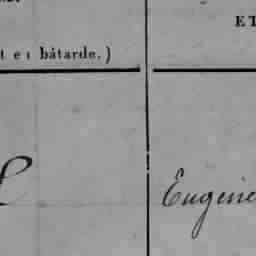 ET
t en bâtarde.)
Eugène